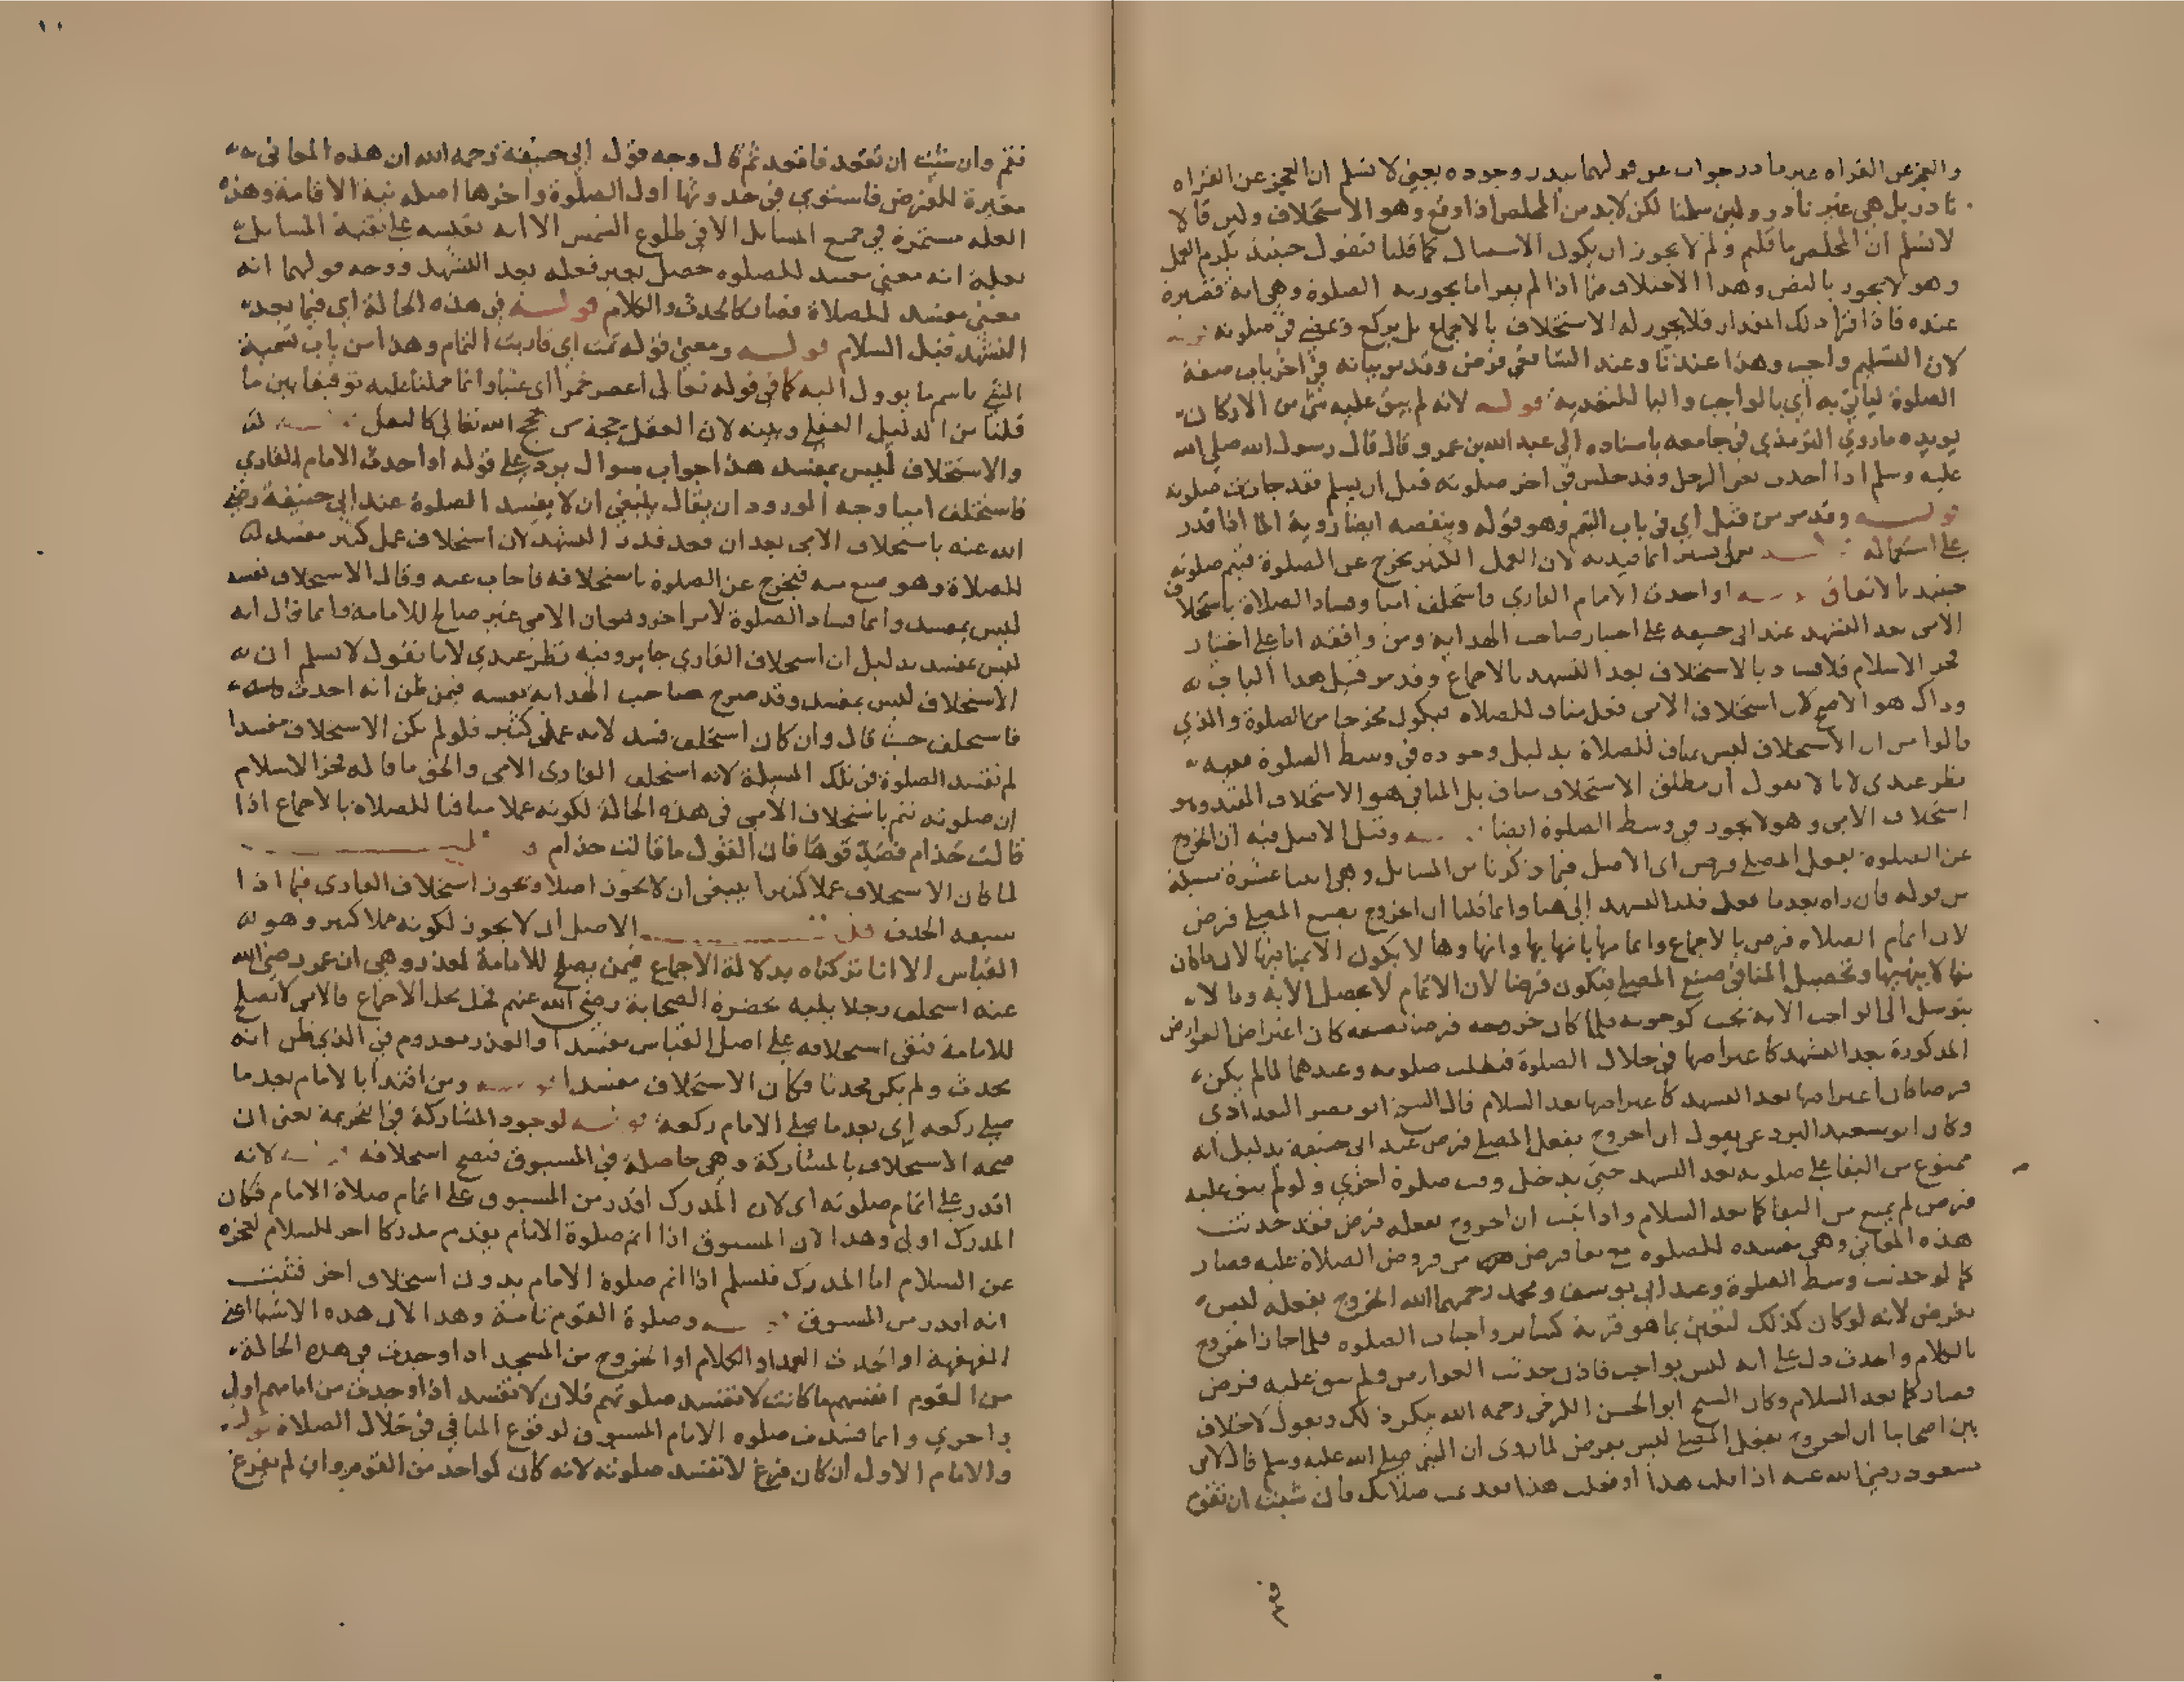 والعجز عن القراه غير نادر جواب عن قولهما يندر وجوده يعني لا نسلم ان العجز عن القراه
نادر بل هي غير نادر ولين سلمنا لكن لا بد من المخلص اذا وقع وهو الاستخلاف ولين قالا
لا نسلم ان المخلص ما قلتم ولم لا يجوز ان يكون الاستقبال كما قلنا فنقول حينئذ يلزم العمل
وهو لا يجوز بالنص وهذا الاختلاف فيما اذا لم يقرا ما يجوز به الصلوة وهي اية قصيرة
عنده فاذا قرا ذلك المقدار فلا يجوز له الاستخلاف بالاجماع بل يركع ويمضي في صلوته قوله
لان التسليم واجب وهذا عندنا وعند الشافعي فرض وقد مر بيانه في اخر باب صفة
الصلوة لياتي به اي بالواجب والبا للتعدية قوله لانه لم يبق عليه شي من الاركان
يويده ما روي الترمذي في جامعه باسناده الي عبد الله بن عمرو قال قال رسول الله صلي الله
عليه وسلم اذا احدث يعني الرجل وقد جلس في اخر صلوته قبل ان يسلم فقد جازت صلوته
قوله وقد مر من قبل اي في باب التيمم وهو قوله وينقضه ايضا روية الما اذا قدر
علي استعماله قوله عمل يسير انما قيد به لان العمل الكثير يخرج عن الصلوة فتتم صلوته
حينئذ بالاتفاق قوله او احدث الامام القاري فاستخلف اميا وفساد الصلاة باستخلاف
الامي بعد التشهد عند ابي حنيفه علي اختيار صاحب الهدايه ومن وافقه اما علي اختيار
فخر الاسلام فلا فساد بالاستخلاف بعد التشهد بالاجماع وقد مر قبيل هذا الباب
وذاك هو الاصح لان استخلاف الامي فعل مناف للصلاه فيكون مخرجا من الصلوة والذي
قالوا من ان الاستخلاف ليس بمناف للصلاة بدليل وجوده في وسط الصلوة ففيه
نظر عندي لانا لا نقول ان مطلق الاستخلاف مناف بل المنافي هو الاستخلاف المقيد وهو
استخلاف الامي وهو لا يجوز في وسط الصلوة ايضا قوله وقيل الاصل فيه ان الخروج
عن الصلوة بفعل المصلي فرض اي الاصل فيما ذكرنا من المسايل وهي اثنا عشرة مسيلة
من قوله فان راه بعد ما قعد قدر التشهد الي هنا وانما قلنا ان الخروج بصنع المصلي فرض
لان اتمام الصلاه فرض بالاجماع واتمامها بانهايها وانهاوها لا يكون الا بمنافيها لان ما كان
منها لا ينهيها وتحصيل المنافي صنع المصلي فيكون فرضا لان الاتمام لا يحصل الا به وما لا
يتوسل الي الواجب الا به يجب كوجوبه فلما كان خروجه فرضا بصنعه كان اعتراض العوارض
المذكورة بعد التشهد كاعتراضها في خلال الصلوة فبطلت صلوته وعندهما لما لم يكن
فرضا كان اعتراضها بعد التشهد كاعتراضها بعد السلام قال الشيخ ابو نصر البغدادي
وكان ابو سعيد البردعي يقول ان الخروج بفعل المصلي فرض عند ابي حنيفه بدليل انه
ممنوع من البقا علي صلوته بعد التشهد حتي يدخل وقت صلوة اخري ولو لم يبق عليه
فرض لم يمنع من البقا كما بعد السلام واذا ثبت ان الخروج بفعله فرض فقد حدثت
هذه المعاني وهي مفسده للصلوه مع بقا فرض من فروض الصلاة عليه فصار
كما لو حدثت وسط الصلوة وعند ابي يوسف ومحمد رحمهما الله الخروج بفعله ليس
بفرض لانه لو كان كذلك لتعين بما هو قربة كساير واجبات الصلوه فلما جاز الخروج
بالكلام والحدث دل علي انه ليس بواجب فاذن حدثت العوارض ولم يبق عليه فرض
فصار كما بعد السلام وكان الشيخ ابو الحسن الكرخي رحمه الله ينكر ذلك ويقول لا خلاف
بين اصحابنا ان الخروج بفعل المصلي ليس بفرض لما روي ان النبي صلي الله عليه وسلم قال لابن
مسعود رضي الله عنه اذا قلت هذا او فعلت هذا فقد تمت صلاتك فان شيت ان تقوم
فقم وان شيت ان تقعد فاقعد ثم قال وجه قول ابي حنيفة رحمه الله ان هذه المعاني
مغيرة للفرض فاستوي في حدوثها اول الصلوة واخرها اصله نية الاقامة وهذه
العله مستمرة في جميع المسايل الا في طلوع الشمس الا انه نقيسه علي بقية المسايل
بعلة انه معني مفسد للصلوه حصل بغير فعله بعد التشهد ووجه قولهما انه
معني مفسد للصلاة فصار كالحدث والكلام قوله في هذه الحالة اي فيما بعد
التشهد قبل السلام قوله ومعني قوله تمت اي قاربت التمام وهذا من باب تسمية
الشي باسم ما يوول اليه كما في قوله تعالي اعصر خمرا اي عنبا وانما حملنا عليه توفيقا بين ما
قلنا من الدليل العقلي وبينه لان العقل حجة من حجج الله تعالي كالنقل قوله
والاستخلاف ليس بمفسد هذا جواب سوال يرد علي قوله او احدث الامام القاري
فاستخلف اميا وجه الورود ان يقال ينبغي ان لا يفسد الصلوة عند ابي حنيفة رضي
الله عنه باستخلاف الامي بعد ان قعد قدر التشهد لان استخلاف عمل كثير مفسد
للصلاة وهو صنع منه فيخرج عن الصلوة باستخلافه فاجاب عنه وقال الاستخلاف نفسه
ليس بمفسد وانما فساد الصلوة لامر اخر وهو ان الامي غير صالح للامامة وانما قال انه
ليس بمفسد بدليل ان استخلاف القاري جايز وفيه نظر عندي لانا نقول لا نسلم ان
الاستخلاف ليس بمفسد وقد صرح صاحب الهدايه بنفسه فيمن ظن انه احدث
فاستخلف حيث قال وان كان استخلف فسد لانه عمل كثير فلو لم يكن الاستخلاف مفسدا
لم تفسد الصلوة في تلك المسيلة لانه استخلف القاري الامي والحق ما قاله فخر الاسلام
ان صلوته تتم باستخلاف الامي في هذه الحالة لكونه عملا منافيا للصلاه بالاجماع اذا
قالت حذام فصدقوها فان القول ما قالت حذام
لما كان الاستخلاف عملا كثيرا ينبغي ان لا يجوز اصلا ويجوز استخلاف القاري فيما اذا
سبقه الحدث قلت الاصل ان لا يجوز لكونه عملا كثيرا وهو
القياس الا انا تركناه بدلالة الاجماع فيمن يصلح للامامة لعذر وهي ان عمر رضي الله
عنه استخلف رجلا يليه بحضرة الصحابة رضي الله عنهم فحل محل الاجماع فالامي لا يصلح
للامامة فبقي استخلافه علي اصل القياس مفسدا والعذر معدوم في الذي ظن انه
يحدث ولم يكن محدثا فكان الاستخلاف مفسدا قوله ومن اقتدا بالامام بعد ما
صلي ركعه اي بعد ما صلي الامام ركعة قوله لوجود المشاركة في التحريمة يعني ان
صحه الاستخلاف بالمشاركة وهي حاصلة في المسبوق فيصح استخلافه قوله لانه
اقدر علي اتمام صلوته اي لان المدرك اقدر من المسبوق علي اتمام صلاة الامام فكان
المدرك اولي وهذا لان المسبوق اذا اتم صلوة الامام يقدم مدركا اخر للسلام لعجزه
عن السلام اما المدرك فيسلم اذا اتم صلوة الامام بدون استخلاف اخر فثبت
انه اقدر من المسبوق قوله وصلوة القوم تامة وهذا لان هذه الاشيا اعني
القهقهة او الحدث العمد او الكلام او الخروج من المسجد اذا وجدت في هذه الحالة
من القوم انفسهم ما كانت لا تفسد صلوتهم فلان لا تفسد اذا وجدت من امامهم اولي
واحري وانما فسدت صلوه الامام المسبوق لوقوع المنافي في خلال الصلاة قوله
والامام الاول ان كان فرغ لا تفسد صلوته لانه كان كواحد من القوم وان لم يفرغ